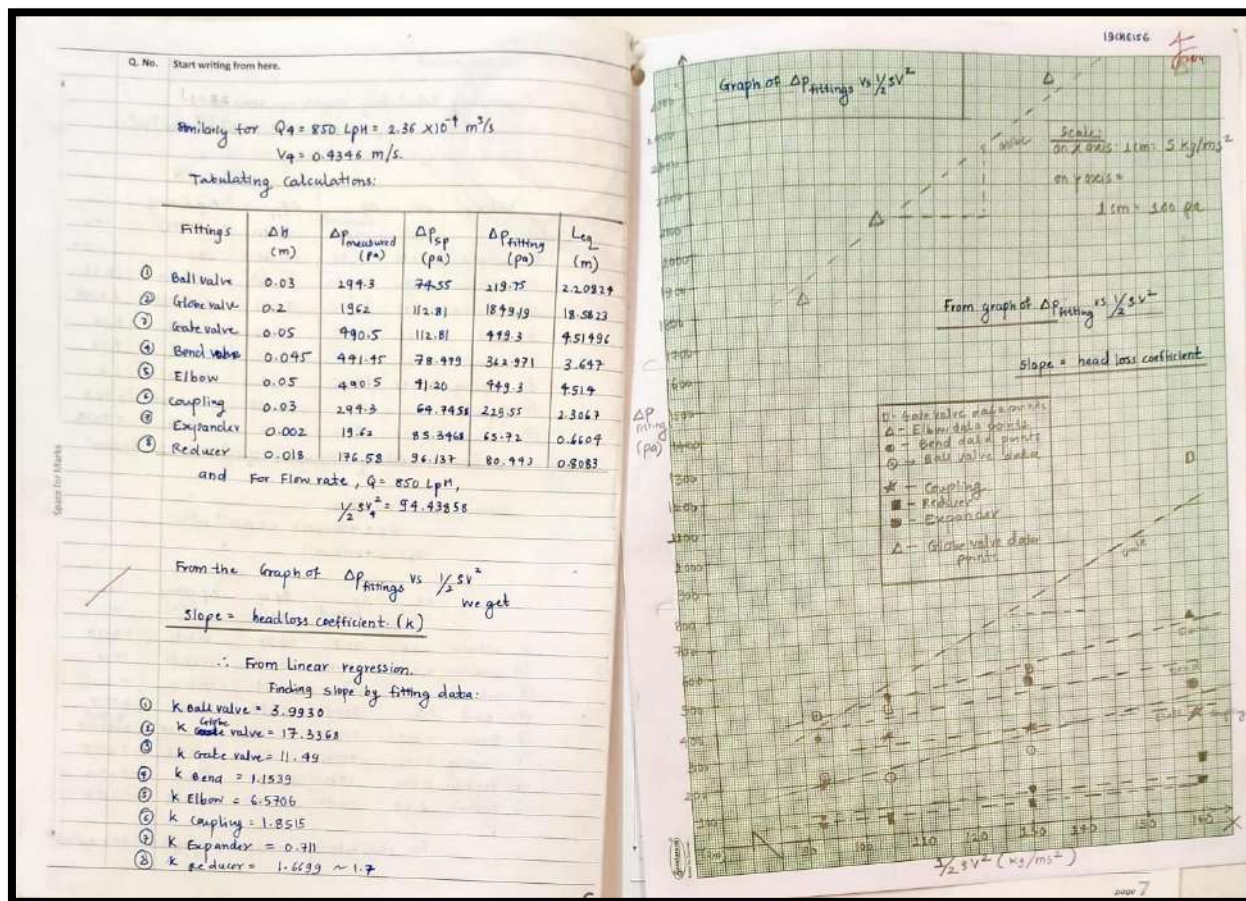 Q. No. Start writing from here.
Similarly for Q4 = 850 LpH = 2.36 ×10⁻⁴ m³/s
V4 = 0.4346 m/s.
Tabulating Calculations:
Fittings Δh (m) Δp measured (pa) Δp sp (pa) Δp fitting (pa) Leq (m)
① Ball valve 0.03 294.3 74.55 219.75 2.20824
② Globe valve 0.2 1962 112.81 1849.19 18.5823
③ Gate valve 0.05 490.5 112.81 449.3 4.51496
④ Bend valve 0.045 441.45 78.479 362.971 3.647
⑤ Elbow 0.05 490.5 41.20 449.3 4.514
⑥ Coupling 0.03 294.3 64.7458 229.55 2.3067
Expander 0.002 19.62 85.3468 65.72 0.6604
⑧ Reducer 0.018 176.58 96.137 80.443 0.8083
and For Flow rate, Q = 850 LpH,
½ ρv₄² = 94.43858
From the Graph of Δp fittings vs ½ ρv²
we get
Slope = head loss coefficient. (k)
∴ From Linear regression.
Finding slope by fitting data:
① k Ball valve = 3.9930
② k Globe valve = 17.3368
③ k Gate valve = 11.49
④ k Bend = 1.1539
⑤ k Elbow = 6.5706
⑥ k Coupling = 1.8515
⑦ k Expander = 0.711
⑧ k Reducer = 1.6699 ~ 1.7
Space for Marks
19CHE156
Graph of Δp fittings vs ½ ρv²
Scale:
on X axis - 1cm = 5 kg/ms²
on Y axis =
1 cm = 100 pa
From graph of Δp fitting vs ½ ρv²
Slope = head loss coefficient
□ - Gate valve data points
△ - Elbow data points
Bend data points
⊙ → Ball valve data
★ - Coupling
■ - Reducer
- Expander
△ - Globe valve data points
Δp fitting (pa)
1900
1800
1700
1600
1500
1400
1300
1200
1100
1000
800
700
600
500
400
300
200
100
90 100 110 120 130 140 150 160 X
½ ρv² (kg/ms²)
page 7